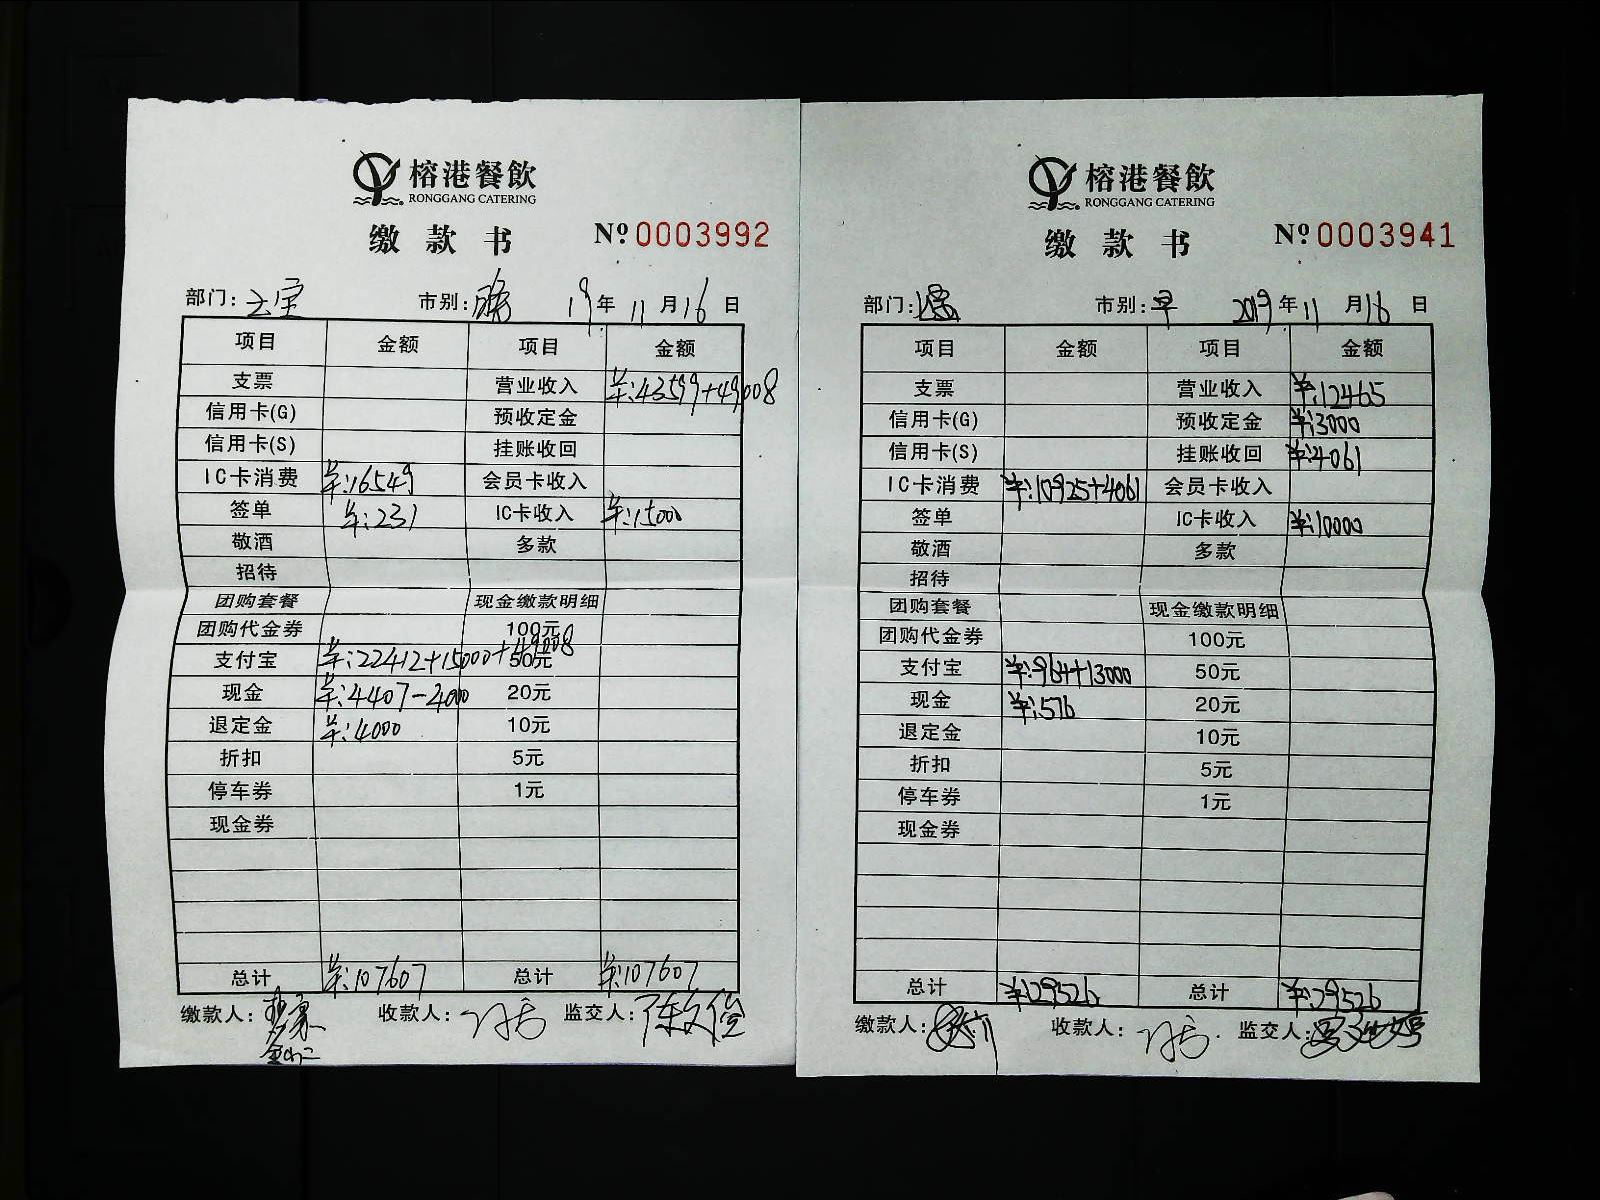 榕港餐飲
RONGGANG CATERING
缴款书 Nº 0003992
部门: 市别: 19年 11月16日
项目 金额 项目 金额
支票 营业收入 ¥:43599+49008
信用卡(G) 预收定金
信用卡(S) 挂账收回
IC卡消费 ¥:16549 会员卡收入
签单 ¥:231 IC卡收入 ¥:15000
敬酒 多款
招待
团购套餐 现金缴款明细
团购代金券 100元
支付宝 ¥:22412+15000+49008 50元
现金 ¥:4407-4000 20元
退定金 ¥:4000 10元
折扣 5元
停车券 1元
现金券
总计 ¥:107607 总计 ¥:107607
缴款人: 收款人: 监交人:
榕港餐飲
RONGGANG CATERING
缴款书 Nº 0003941
部门: 市别:早 2019年11月16日
项目 金额 项目 金额
支票 营业收入 ¥:12465
信用卡(G) 预收定金 ¥:3000
信用卡(S) 挂账收回 ¥:4061
IC卡消费 ¥:10925+4061 会员卡收入
签单 IC卡收入 ¥:10000
敬酒 多款
招待
团购套餐 现金缴款明细
团购代金券 100元
支付宝 ¥:964+13000 50元
现金 ¥:576 20元
退定金 10元
折扣 5元
停车券 1元
现金券
总计 ¥:29526 总计 ¥:29526
缴款人: 收款人: 监交人: